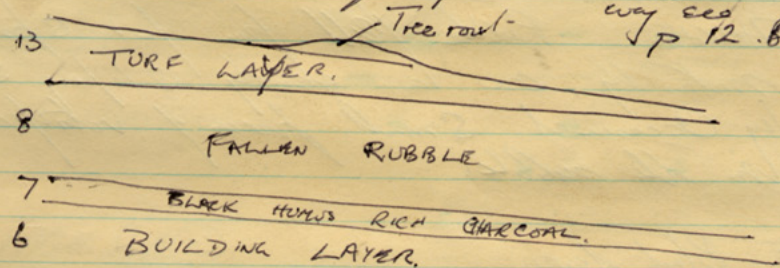 Tree root
way see
p 12 .B
13
TURF LAYER.
8
FALLEN RUBBLE
7
BLACK HUMUS RICH CHARCOAL.
6
BUILDING LAYER.